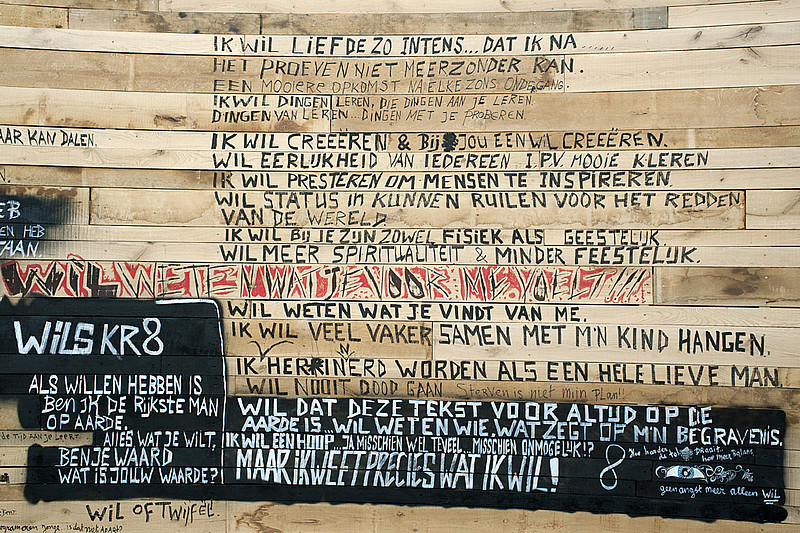 IK WIL LIEFDE ZO INTENS... DAT IK NA
HET PROEVEN NIET MEER ZONDER KAN.
EEN MOOIERE OPKOMST NA ELKE ZONS ONDEGANG.
IK WIL DINGEN LEREN, DIE DINGEN AAN JE LEREN
DINGEN VAN LEREN... DINGEN MET JE PROBEREN
AAR KAN DALEN.
IK WIL CREEËREN & Bij JOU EEN WIL CREEËREN.
WIL EERLIJKHEID VAN IEDEREEN I.P.V. MOOIE KLEREN
IK WIL PRESTEREN OM MENSEN TE INSPIREREN.
WIL STATUS IN KUNNEN RUILEN VOOR HET REDDEN
VAN DE WERELD
EB
EN HEB
AAN
IK WIL BIJ JE ZIJN ZOWEL FISIEK ALS GEESTELIJK.
WIL MEER SPIRITUALITEIT & MINDER FEESTELIJK.
WIL WETEN WAT JE VOOR ME VOELT!!!
WIL WETEN WAT JE VINDT VAN ME.
IK WIL VEEL VAKER SAMEN MET M'N KIND HANGEN.
IK HERINNERD WORDEN ALS EEN HELE LIEVE MAN.
WIL NOOIT DOOD GAAN Sterven is niet mijn plan!!
WILS KR8
ALS WILLEN HEBBEN IS
BEN IK DE RIJKSTE MAN
OP AARDE.
de tijd aan je leert.
ALLES WAT JE WILT,
BEN JE WAARD
WAT IS JOUW WAARDE?
WIL DAT DEZE TEKST VOOR ALTIJD OP DE
AARDE IS... WIL WETEN WIE, WAT ZEGT OP M'N BEGRAVENIS.
IK WIL EEN HOOP... JA MISSCHIEN WEL TEVEEL... MISSCHIEN ONMOGELIJK!?
MAAR IK WEET PRECIES WAT IK WIL!
8
Hoe harder
draait
hoe meer Balans
geen angst meer alleen WIL
WIL OF TWIJFEL.